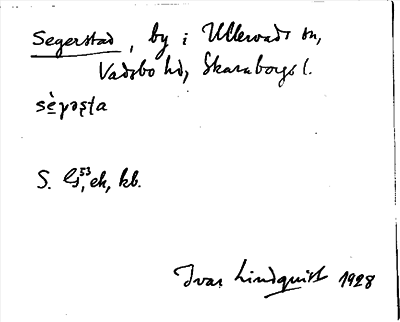 Segerstad, by i Ullervads sn,
Vadsbo hd, Skaraborgs l.
sè̱γəṣta
S. G,⁵³ ek, kb.
Ivar Lindquist 1928